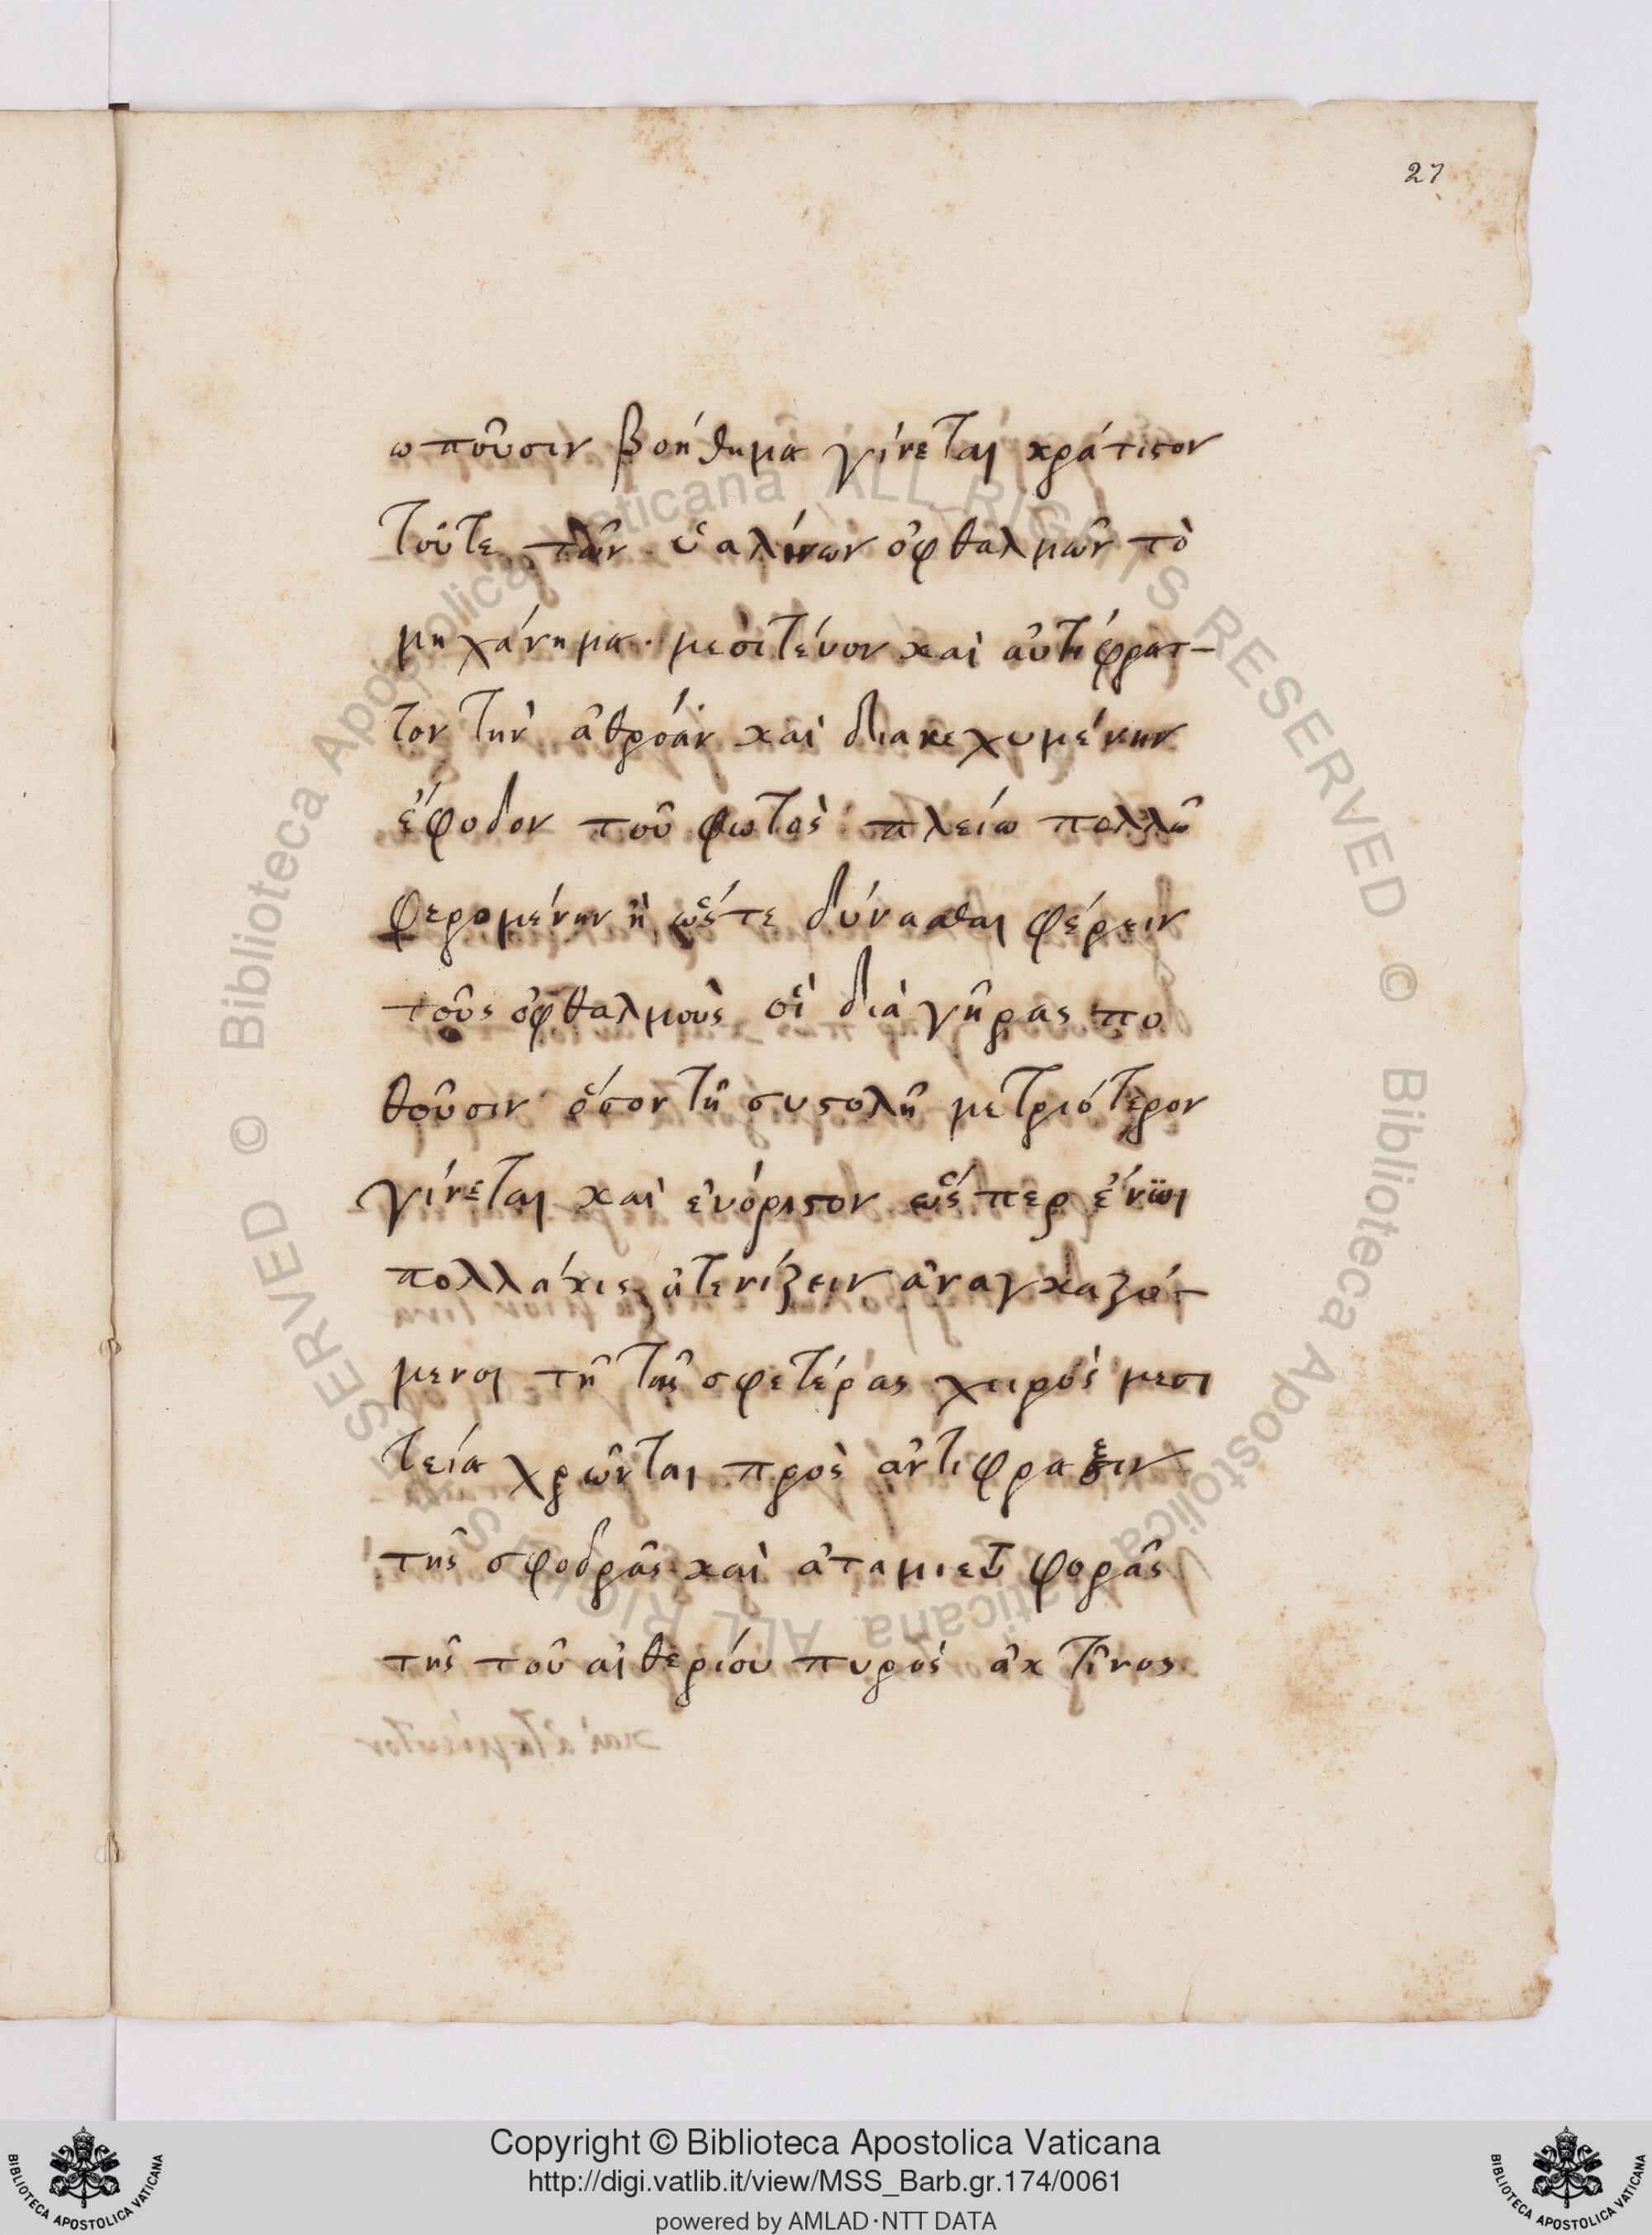 27
ωποῦσιν βοήθημα γίνεται κράτιστον
τοῦτε τῶν ὑαλίνων ὀφθαλμῶν τὸ
μηχάνημα· μεσιτεύον καὶ ἀντιφρατ-
τον τὴν ἀθρόαν καὶ διακεχυμένην
ἔφοδον τοῦ φωτὸς πλείω πολλῶ
φερομένην ἢ ὥστε δύνασθαι φέρειν
τοῦς ὀφθαλμοὺς οἳ διὰ γῆρας πο
θοῦσιν ὅσον τῆ συστολῆ μετριότερον
γίνεται καὶ εὐόριστον ὥσπερ ἔνϊοι
πολλάκις ἀτενίζειν ἀναγκαζό-
μενοι τῆ τῆς σφετέρας χειρὸς μεσι
τεία χρῶνται πρὸς ἀντίφραξιν
τῆς σφοδρᾶς καὶ ἀταμιεύτ φορᾶς
τῆς τοῦ αἰθερίου πυρὸς ἀκτῖνος
© Biblioteca Apostolica Vaticana ALL RIGHTS RESERVED
© Biblioteca Apostolica Vaticana ALL RIGHTS RESERVED
Copyright © Biblioteca Apostolica Vaticana
http://digi.vatlib.it/view/MSS_Barb.gr.174/0061
powered by AMLAD·NTT DATA
BIBLIOTECA APOSTOLICA VATICANA
BIBLIOTECA APOSTOLICA VATICANA